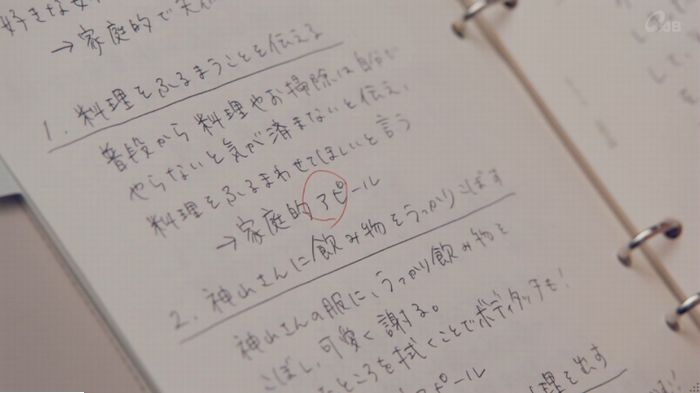 好きな女
→家庭的で天
1. 料理をふるまうことを伝える
普段から料理やお掃除は自分で
やらないと気が済まないと伝え、
料理をふるまわせてほしいと言う
→家庭的アピール
2. 神山さんに飲み物をうっかりこぼす
神山さんの服に、うっかり飲み物を
こぼし、可愛く謝る。
たところを拭くことでボディタッチも!
アピール
理を出す